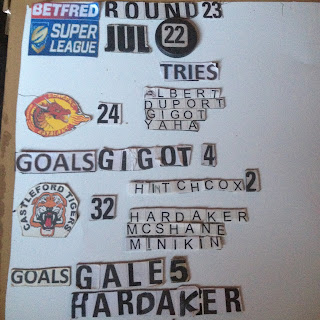 BETFRED ROUND 23
SUPER LEAGUE JUL 22
TRIES
ALBERT
DUPORT
GIGOT
YAHA
24
GOALS GIGOT 4
CASTLEFORD TIGERS
32
HITCHCOX 2
HARDAKER
MCSHANE
MINIKIN
GOALS GALE 5
HARDAKER